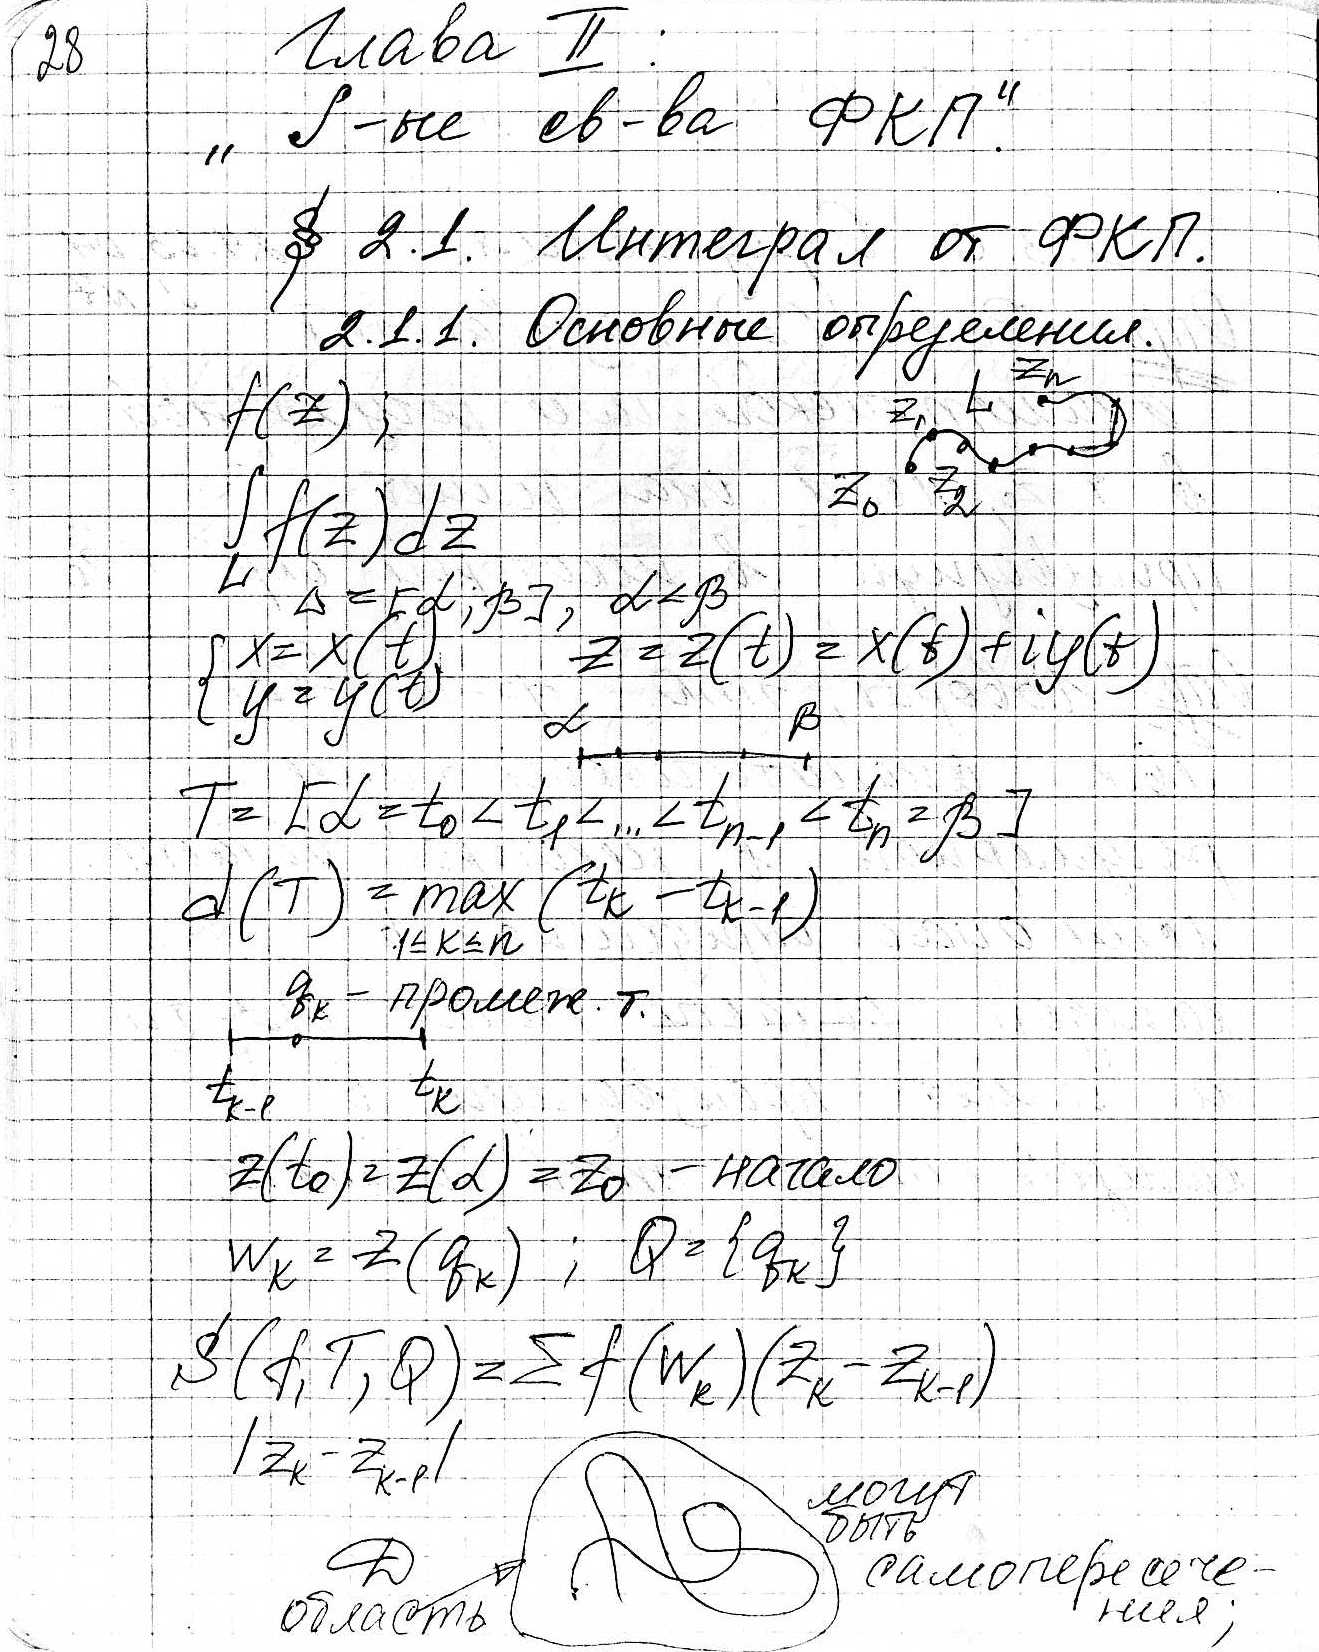 28
Глава II :
„ ∫-ные св-ва ФКП“.
§ 2.1. Интеграл от ФКП.
2.1.1. Основные определения.
f(z) ;
z₁ L zₙ
z₀ z₂
∫_L f(z)dz
Δ = [α; β], α < β
{ x = x(t)
y = y(t)
z = z(t) = x(t) + iy(t)
α β
T = [α = t₀ < t₁ < ... < tₙ₋₁ < tₙ = β]
d(T) = max (tₖ - tₖ₋₁)
1≤k≤n
qₖ - промеж. т.
tₖ₋₁ tₖ
z(t₀) = z(α) = z₀ - начало
wₖ = z(qₖ) ; Q = {qₖ}
S(f, T, Q) = Σ f(wₖ)(zₖ - zₖ₋₁)
|zₖ - zₖ₋₁|
могут
быть
самопересече-
ния;
D
область